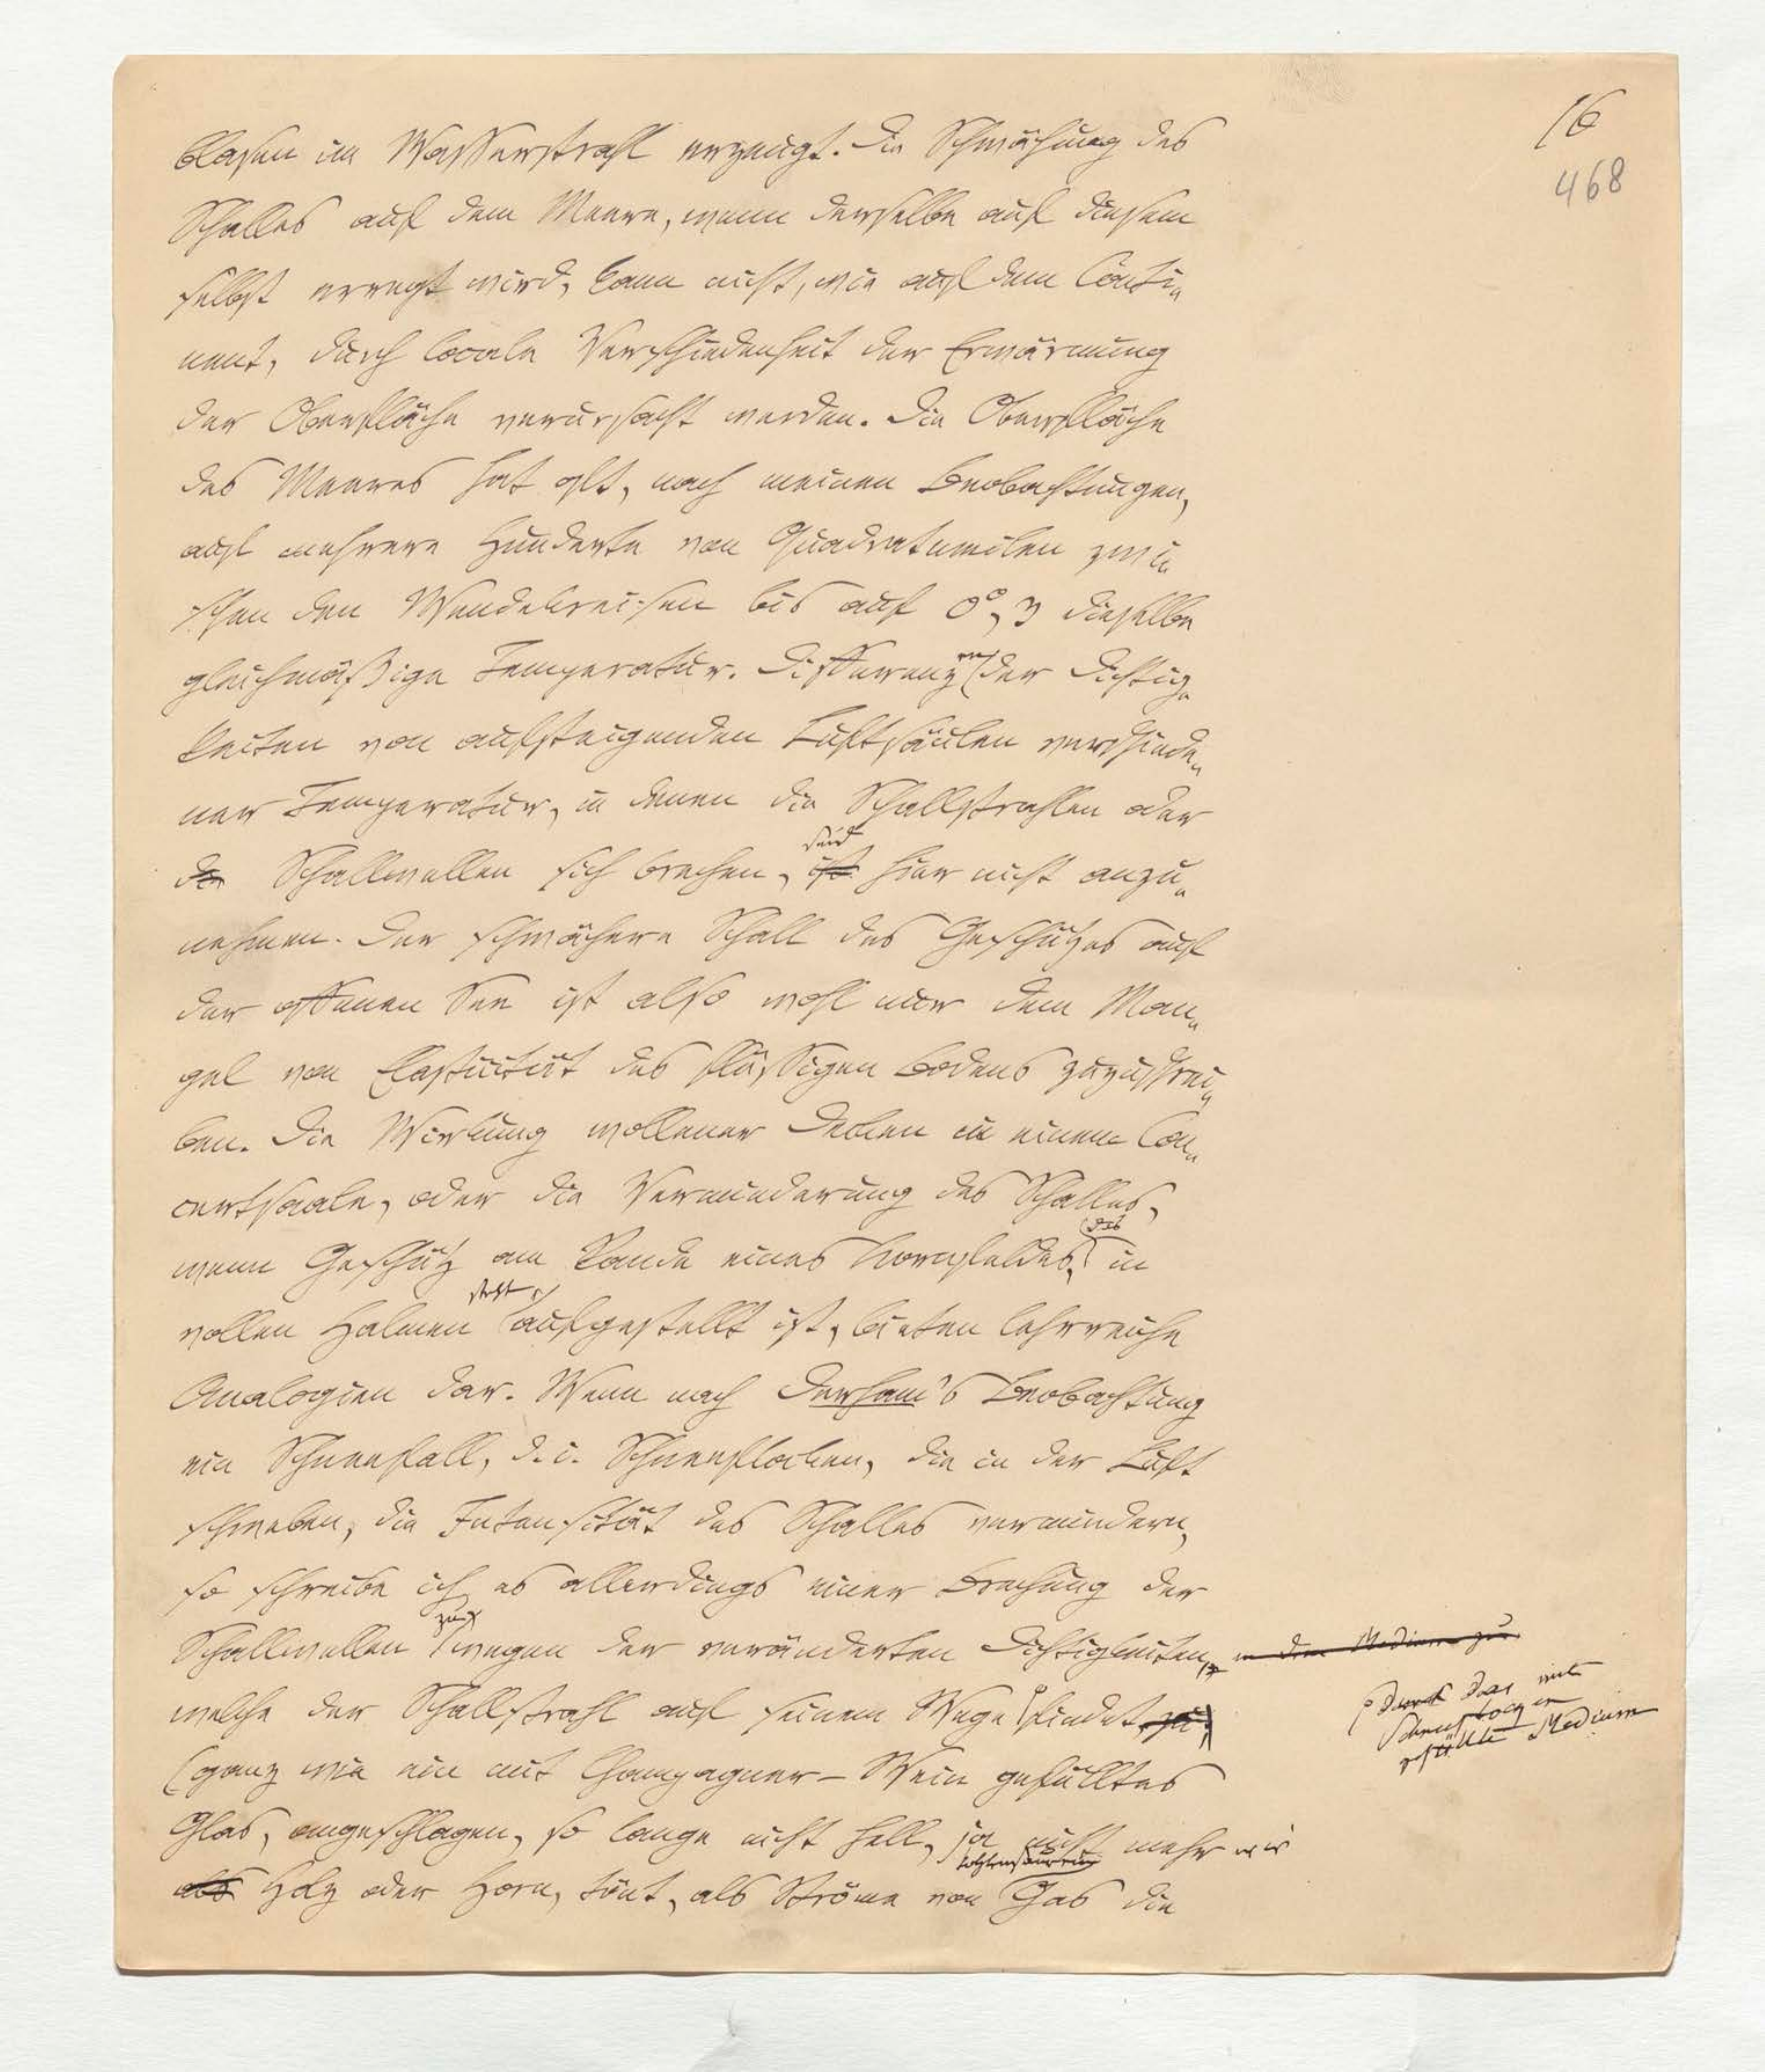 16
468
blasen im Wasserstrahl erzeugt. Die Schwächung des
Schalles auf dem Meere, wenn derselbe auf diesem
selbst erregt wird, kann nicht, wie auf dem Conti-
nent, durch locale Verschiedenheit der Erwärmung
der Oberfläche verursacht werden. Die Oberfläche
des Meeres hat oft, nach meinen Beobachtungen,
auf mehrere Hunderte von Quadratmeilen zwi-
schen den Wendekreisen bis auf 0°,3 dieselbe
gleichmäßige Temperatur. Differenzen der Dichtig-
keiten von aufsteigenden Luftsäulen verschiede-
ner Temperatur, in denen die Schallstrahlen oder
sind
die Schallwellen sich brechen, ist hier nicht anzu-
nehmen. Der schwächere Schall des Geschützes auf
der offenen See ist also wohl nur dem Man-
gel von Elasticität des flüssigen Bodens zuzuschrei-
ben. Die Wirkung wollener Decken in einem Con-
certsaale, oder die Verminderung des Schalles,
das
wenn Geschütz am Rande eines Kornfeldes, in
steht
vollen Halmen aufgestellt ist, bieten lehrreiche
Analogien dar. Wenn nach Derham's Beobachtung
ein Schneefall, d. i. Schneeflocken, die in der Luft
schweben, die Intensität des Schalles vermindern,
so schreibe ich es allerdings einer Brechung der
zu
Schallwellen wegen der veränderten Dichtigkeiten, in dem Medium zu
welche der Schallstrahl auf seinem Wege findet zu,
durch das mit
Schneeflocken
gefüllte Medium
(ganz wie ein mit Champagner-Wein gefülltes
Glas, angeschlagen, so lange nicht hell, ja nicht mehr wie
als Holz oder Horn, tönt, als Ströme von Gas die